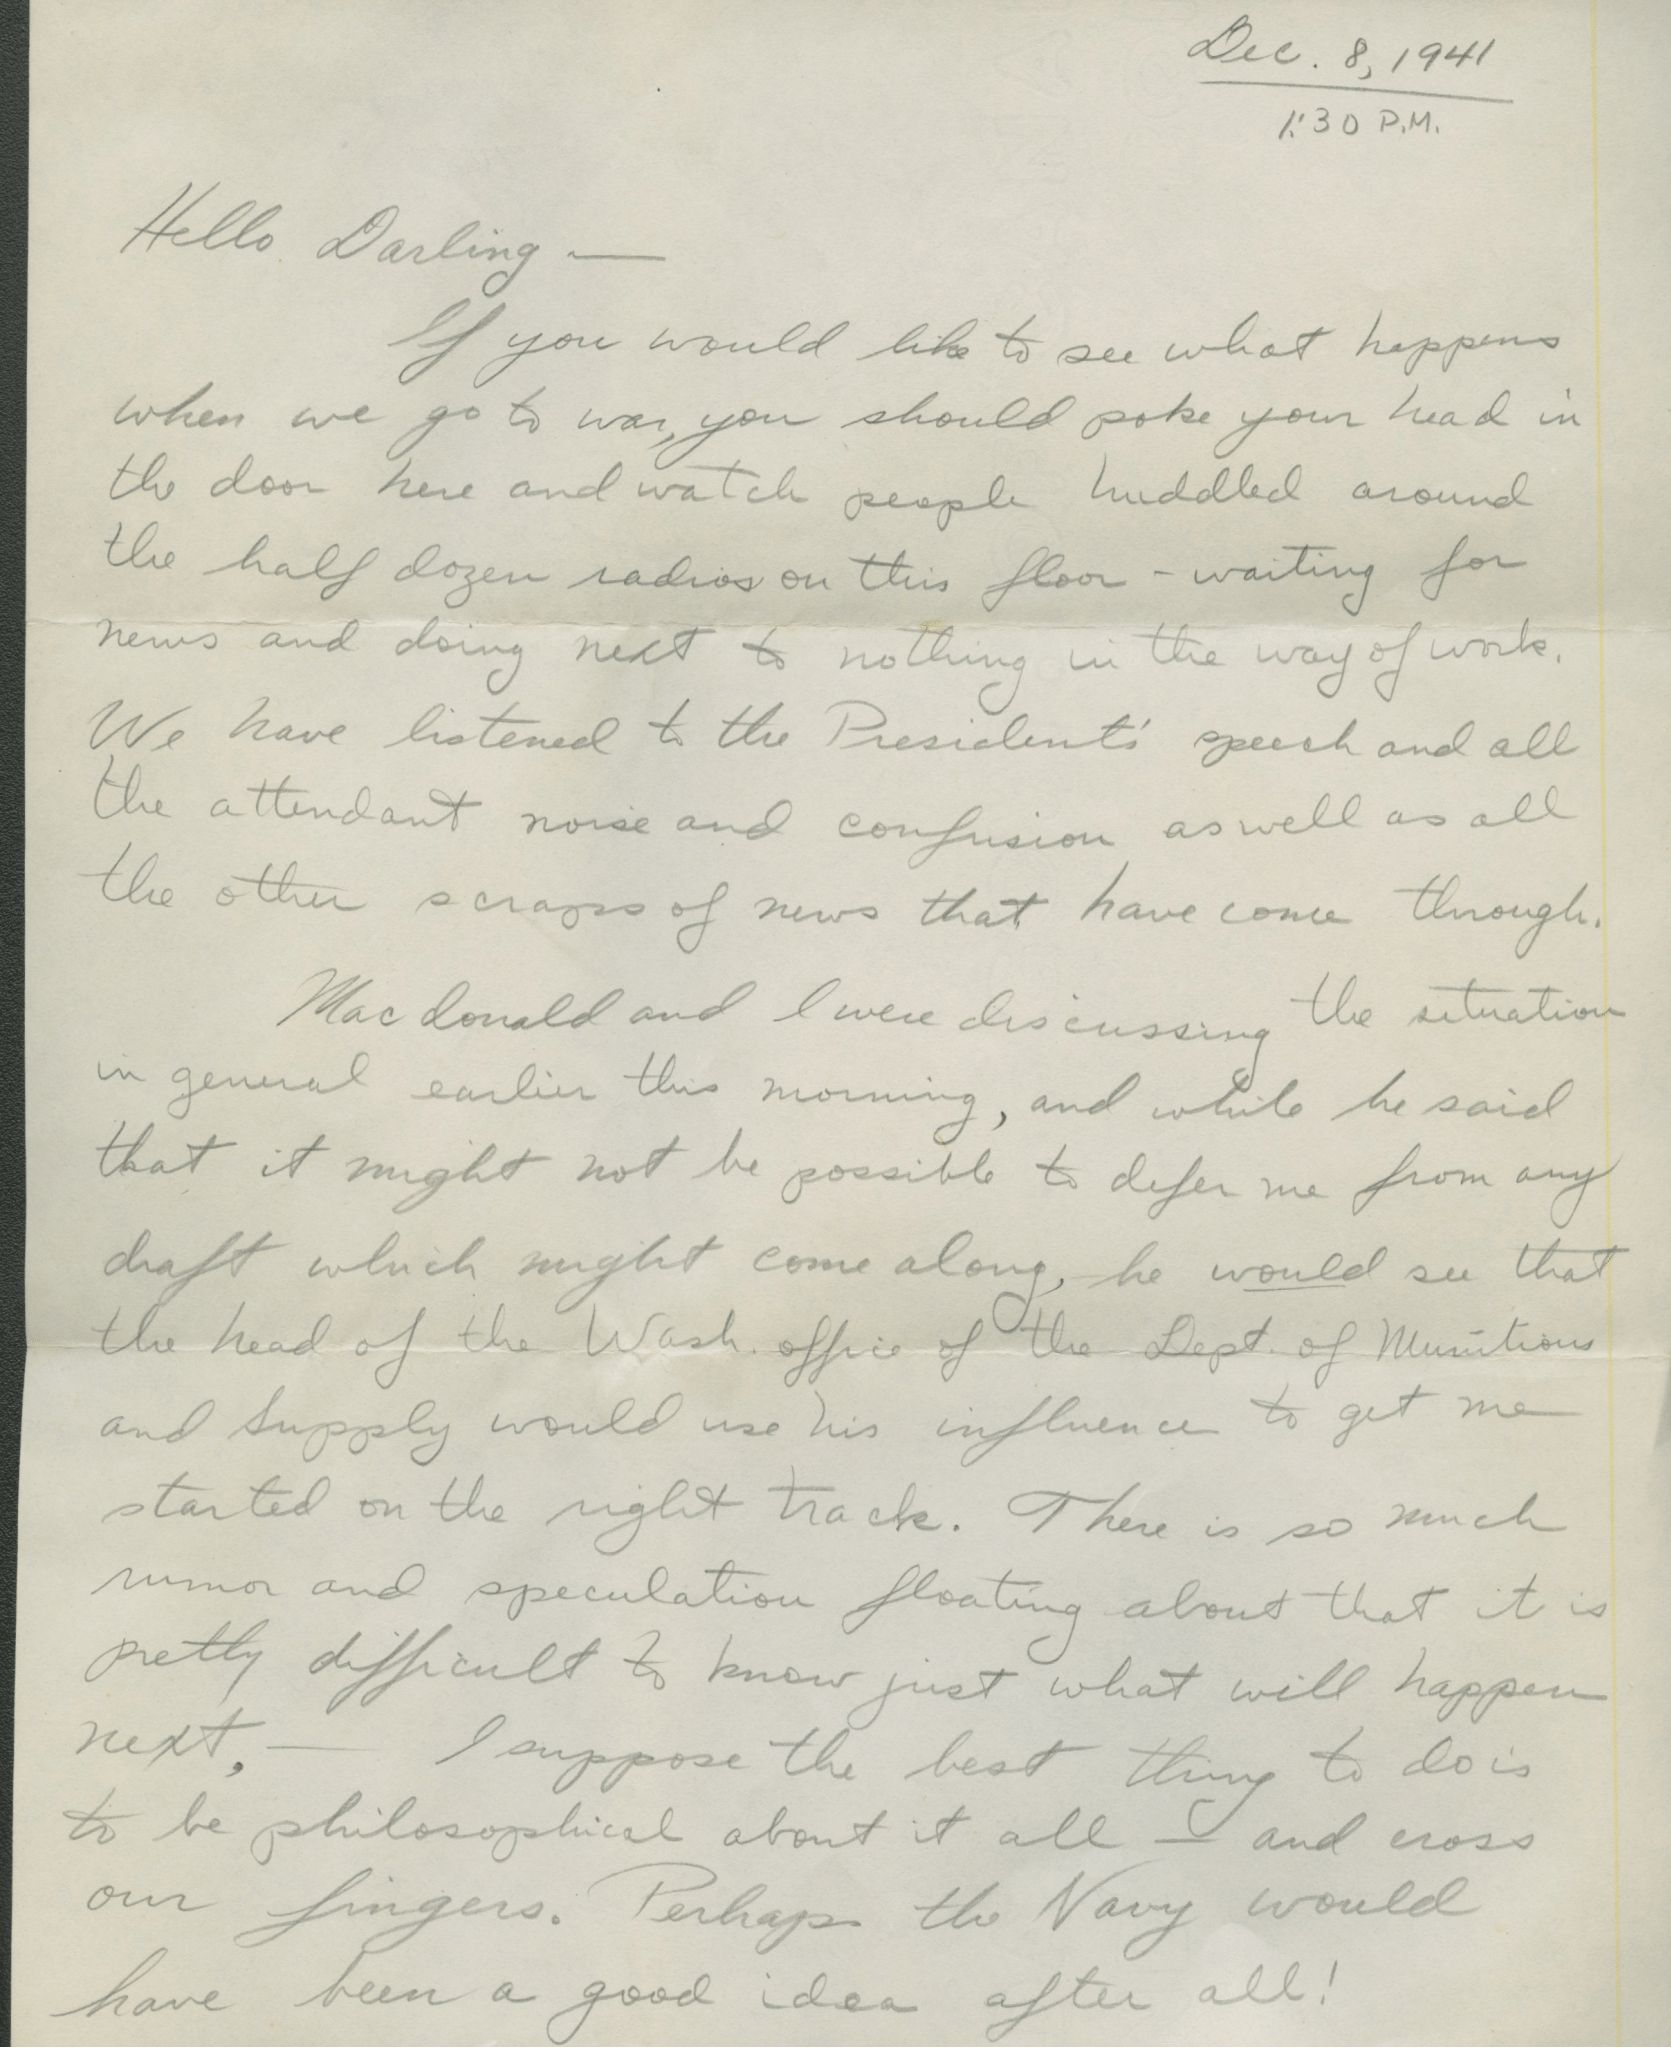 Dec. 8, 1941
1:30 P.M.
Hello Darling —
If you would like to see what happens
when we go to war, you should poke your head in
the door here and watch people huddled around
the half dozen radios on this floor - waiting for
news and doing next to nothing in the way of work.
We have listened to the President's speech and all
the attendant noise and confusion as well as all
the other scraps of news that have come through.
Macdonald and I were discussing the situation
in general earlier this morning, and while he said
that it might not be possible to defer me from any
draft which might come along, he would see that
the head of the Wash. office of the Dept. of Munitions
and Supply would use his influence to get me
started on the right track. There is so much
rumor and speculation floating about that it is
pretty difficult to know just what will happen
next. — I suppose the best thing to do is
to be philosophical about it all — and cross
our fingers. Perhaps the Navy would
have been a good idea after all!